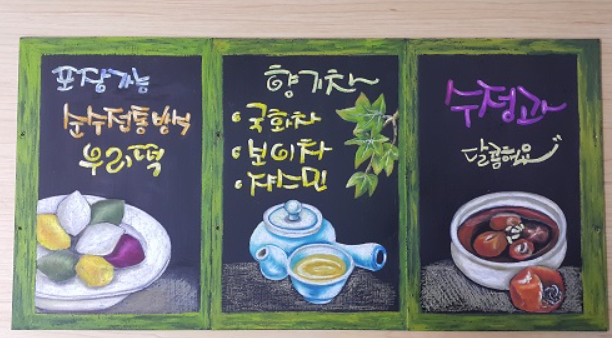 포장가능
순수전통방식
우리떡
향기차~
• 국화차
• 보이차
• 쟈스민
수정과
달콤해요